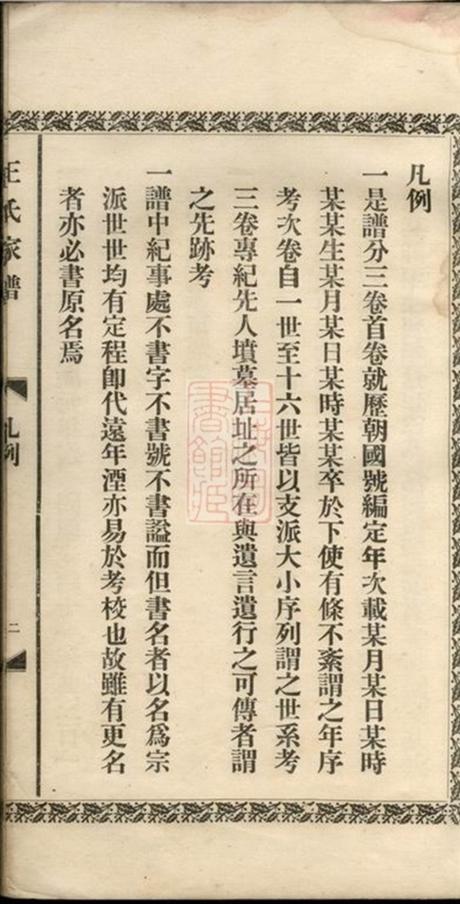 凡例
一是譜分三卷首卷就歷朝國號編定年次載某月某日某時
某某生某月某日某時某某卒於下使有條不紊謂之年序
考次卷自一世至十六世皆以支派大小序列謂之世系考
三卷專紀先人墳墓居址之所在與遺言遺行之可傳者謂
之先跡考
一譜中紀事處不書字不書號不書謚而但書名者以名爲宗
派世世均有定程卽代遠年湮亦易於考校也故雖有更名
者亦必書原名焉
王氏家譜
凡例
二